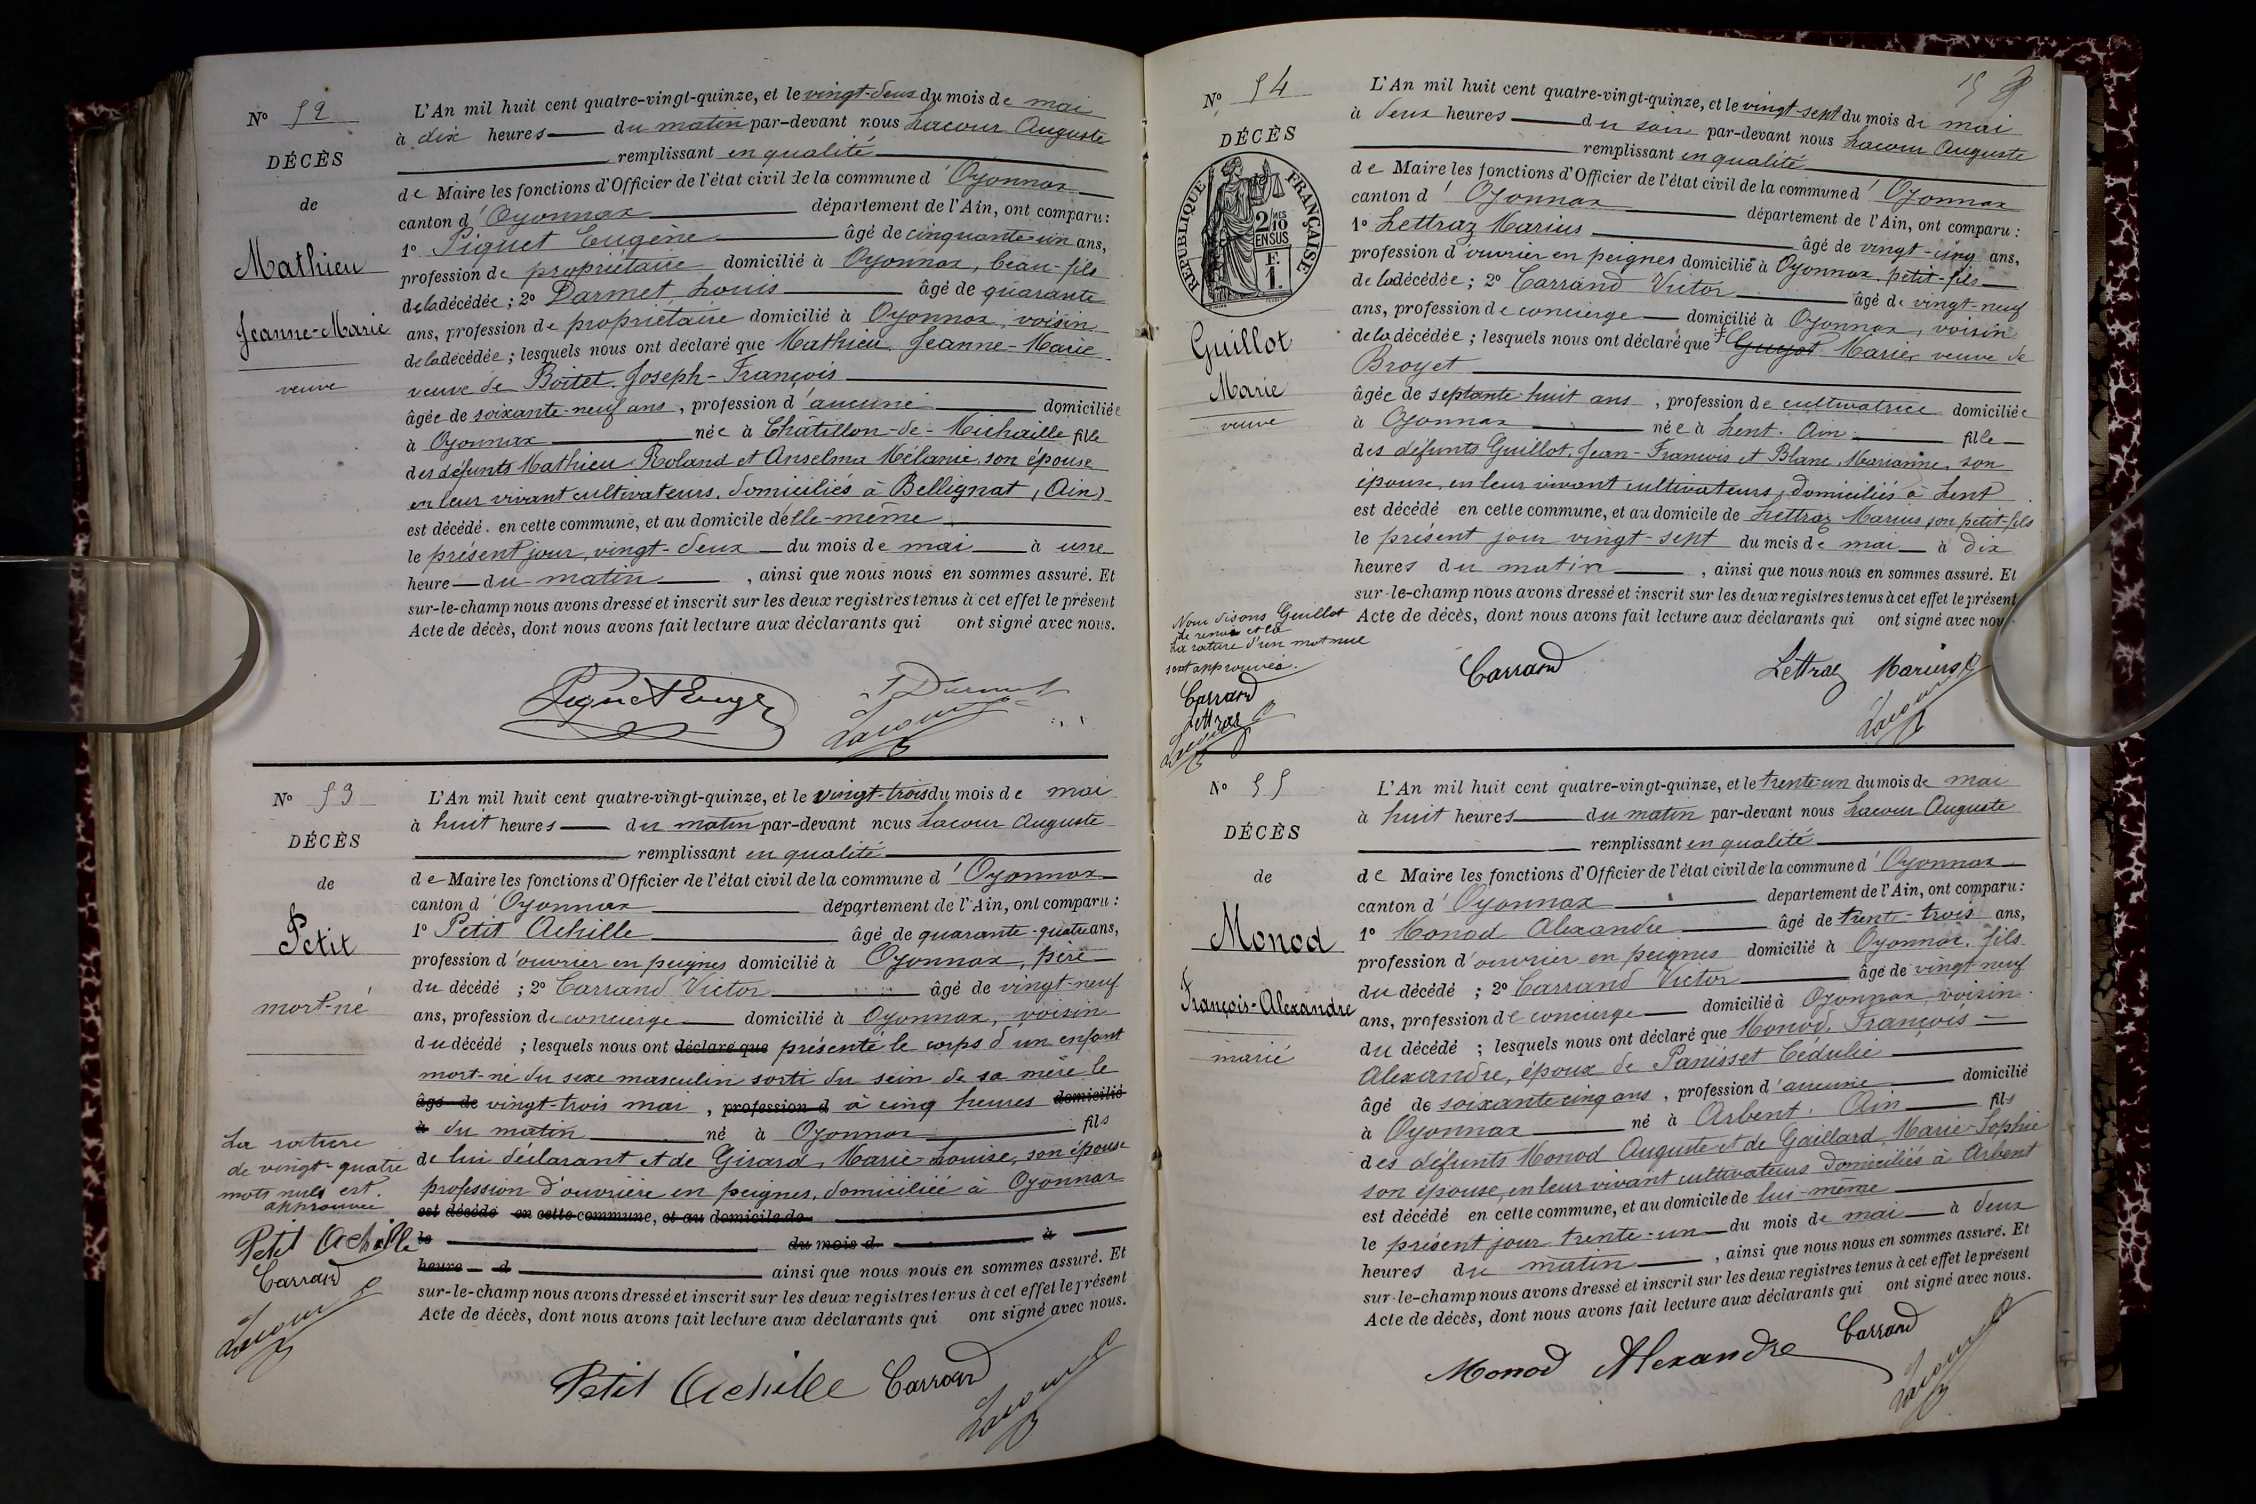 Nº 52
DÉCÈS
de
Mathieu
Jeanne-Marie
veuve
L'An mil huit cent quatre-vingt-quinze, et le vingt-deux du mois de mai
à dix heures du matin par-devant nous Lacour Auguste
remplissant en qualité
de Maire les fonctions d'Officier de l'état civil de la commune d'Oyonnax
canton d'Oyonnax département de l'Ain, ont comparu :
1º Piquet Eugène âgé de cinquante-un ans,
profession de propriétaire domicilié à Oyonnax, beau-fils
de la décédée ; 2º Darmet, Louis âgé de quarante
ans, profession de propriétaire domicilié à Oyonnax, voisin
de la décédée ; lesquels nous ont déclaré que Mathieu, Jeanne-Marie
veuve de Boitet, Joseph-François
âgée de soixante-neuf ans, profession d'aucune domiciliée
à Oyonnax née à Châtillon-de-Michaille fille
des défunts Mathieu Roland et Anselma Mélanie, son épouse
en leur vivant cultivateurs, domiciliés à Bellignat, (Ain)
est décédé en cette commune, et au domicile d'elle-même
le présent jour, vingt-deux du mois de mai à une
heure du matin, ainsi que nous nous en sommes assuré. Et
sur-le-champ nous avons dressé et inscrit sur les deux registres tenus à cet effet le présent
Acte de décès, dont nous avons fait lecture aux déclarants qui ont signé avec nous.
Lacour
Nº 53
DÉCÈS
de
Petit
mort-né
L'An mil huit cent quatre-vingt-quinze, et le vingt-trois du mois de mai
à huit heures du matin par-devant nous Lacour Auguste
remplissant en qualité
de Maire les fonctions d'Officier de l'état civil de la commune d'Oyonnax
canton d'Oyonnax département de l'Ain, ont comparu :
1º Petit Achille âgé de quarante-quatre ans,
profession d'ouvrier en peignes domicilié à Oyonnax, père
du décédé ; 2º Carrand Victor âgé de vingt-neuf
ans, profession de concierge domicilié à Oyonnax, voisin
du décédé ; lesquels nous ont déclaré que présenté le corps d'un enfant
mort-né du sexe masculin sorti du sein de sa mère le
âgé de vingt-trois mai, profession d à cinq heures domicilié
à du matin né à Oyonnax fils
de lui déclarant et de Girard, Marie-Louise, son épouse
profession d'ouvrière en peignes, domiciliée à Oyonnax
est décédé en cette commune, et au domicile de
le du mois d à
heure d ainsi que nous nous en sommes assuré. Et
sur-le-champ nous avons dressé et inscrit sur les deux registres tenus à cet effet le présent
Acte de décès, dont nous avons fait lecture aux déclarants qui ont signé avec nous.
La rature
de vingt-quatre
mots nuls est
approuvée
Petit Achille
Carrand
Lacour
Petit Achille Carrand
Lacour
Nº 54
DÉCÈS
RÉPUBLIQUE FRANÇAISE
2/10 EN SUS
F.
1.
Guillot
Marie
veuve
L'An mil huit cent quatre-vingt-quinze, et le vingt-sept du mois de mai
à deux heures du soir par-devant nous Lacour Auguste
remplissant en qualité
de Maire les fonctions d'Officier de l'état civil de la commune d'Oyonnax
canton d'Oyonnax département de l'Ain, ont comparu :
1º Lettraz Marius âgé de vingt-cinq ans,
profession d'ouvrier en peignes domicilié à Oyonnax, petit-fils
de la décédée ; 2º Carrand Victor âgé de vingt-neuf
ans, profession de concierge domicilié à Oyonnax, voisin
de la décédée ; lesquels nous ont déclaré que Guyot Marie, veuve de
Broyet
âgée de septante-huit ans, profession de cultivatrice domiciliée
à Oyonnax née à Lent. Ain fille
des défunts Guillot, Jean-François et Blanc, Marianne, son
épouse, en leur vivant cultivateurs, domiciliés à Lent
est décédé en cette commune, et au domicile de Lettraz Marius son petit-fils
le présent jour vingt-sept du mois de mai à dix
heures du matin, ainsi que nous nous en sommes assuré. Et
sur-le-champ nous avons dressé et inscrit sur les deux registres tenus à cet effet le présent
Acte de décès, dont nous avons fait lecture aux déclarants qui ont signé avec nous
Nous disons Guillot
le renvoi et la
la rature d'un mot nul
sont approuvés.
Carrand
Lettraz
Lacour
Carrand Lettraz Marius
Lacour
Nº 55
DÉCÈS
de
Monod
François-Alexandre
marié
L'An mil huit cent quatre-vingt-quinze, et le trente-un du mois de mai
à huit heures du matin par-devant nous Lacour Auguste
remplissant en qualité
de Maire les fonctions d'Officier de l'état civil de la commune d'Oyonnax
canton d'Oyonnax département de l'Ain, ont comparu :
1º Monod Alexandre âgé de trente-trois ans,
profession d'ouvrier en peignes domicilié à Oyonnax, fils
du décédé ; 2º Carrand Victor âgé de vingt-neuf
ans, profession de concierge domicilié à Oyonnax, voisin
du décédé ; lesquels nous ont déclaré que Monod, François
Alexandre, époux de Panisset Cédulie
âgé de soixante cinq ans, profession d'aucune domicilié
à Oyonnax né à Arbent. Ain fils
des défunts Monod Auguste et de Gaillard, Marie-Sophie
son épouse, en leur vivant cultivateurs domiciliés à Arbent
est décédé en cette commune, et au domicile de lui-même
le présent jour trente-un du mois de mai à deux
heures du matin, ainsi que nous nous en sommes assuré. Et
sur-le-champ nous avons dressé et inscrit sur les deux registres tenus à cet effet le présent
Acte de décès, dont nous avons fait lecture aux déclarants qui ont signé avec nous.
Monod Alexandre Carrand
Lacour